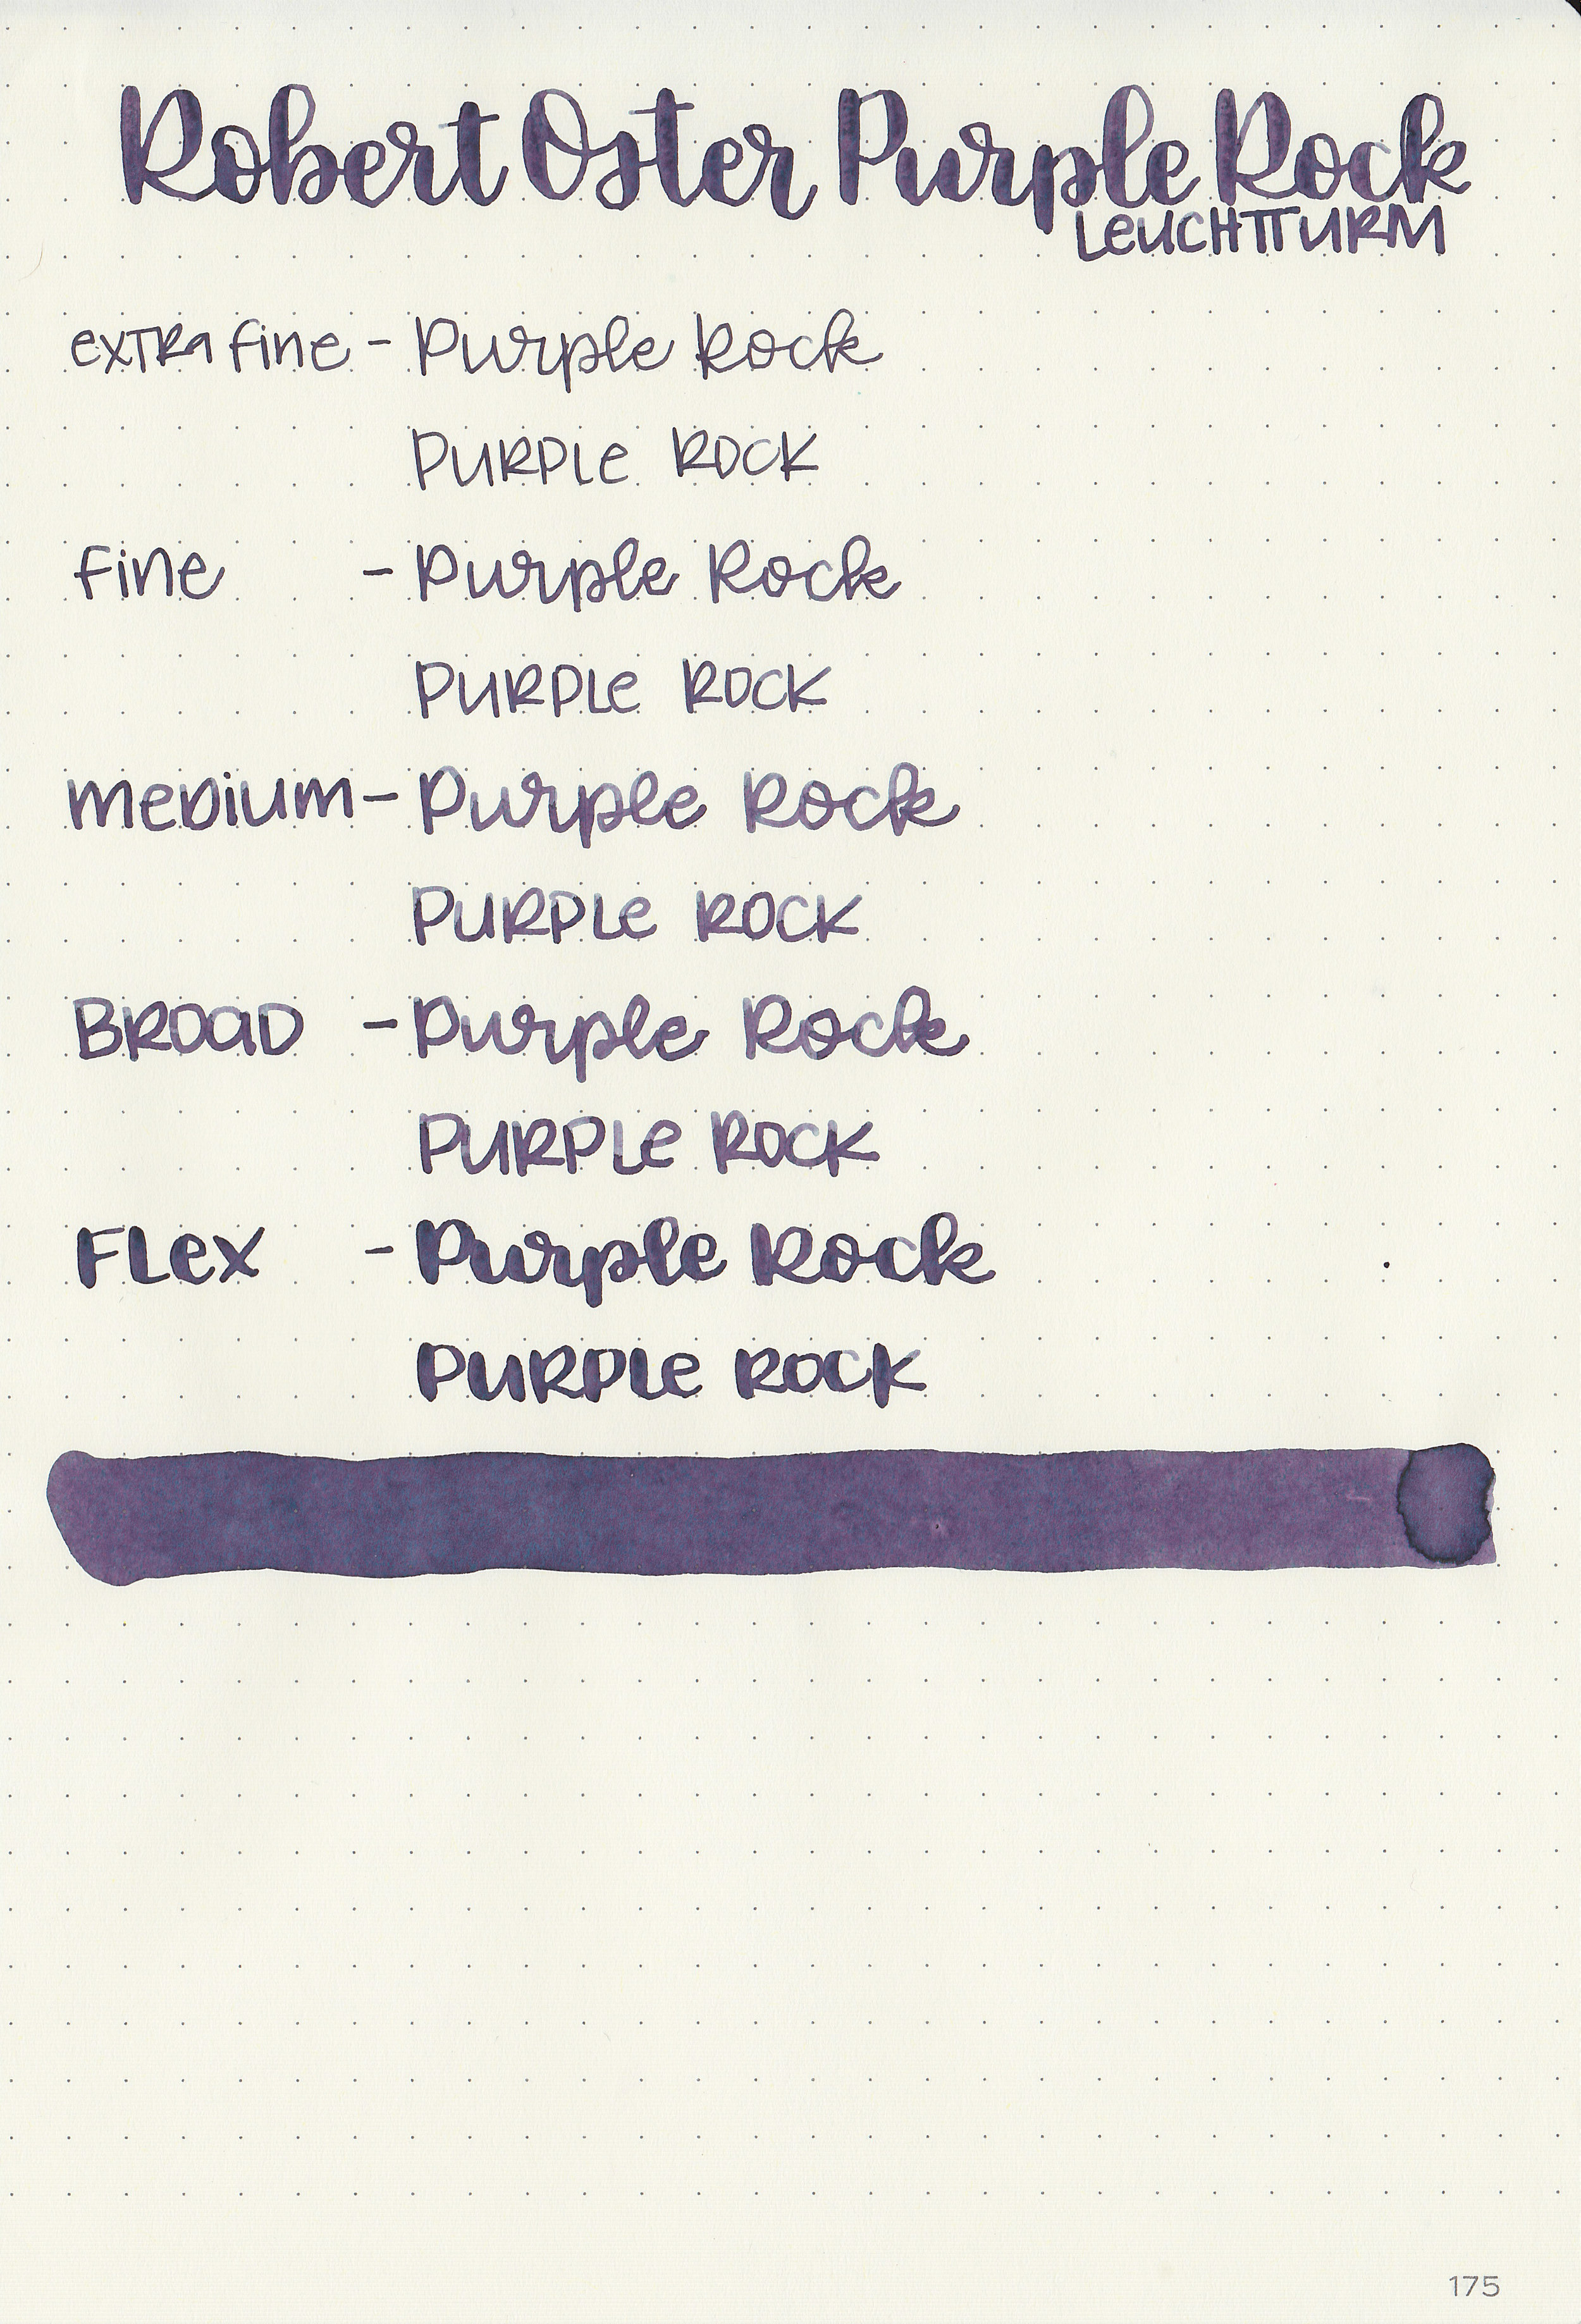 Robert Oster Purple Rock
LEUCHTTURM
extra fine - Purple Rock
PURPLE ROCK
fine - Purple Rock
PURPLE ROCK
medium - Purple Rock
PURPLE ROCK
BROAD - Purple Rock
PURPLE ROCK
FLex - Purple Rock
PURPLE ROCK
175